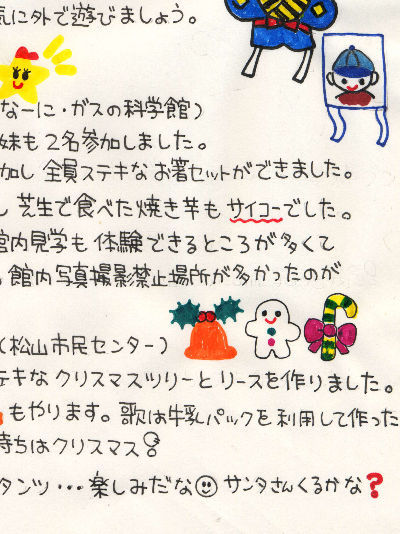 気に外で遊びましょう。
なーに・ガスの科学館）
妹も2名参加しました。
加し 全員ステキなお箸セットができました。
し 芝生で食べた焼き芋も サイコーでした。
館内見学も体験できるところが多くて
。館内写真撮影禁止場所が多かったのが
（松山市民センター）
テキな クリスマスツリーと リースを作りました。
もやります。歌は牛乳パックを利用して作った
持ちはクリスマス
タンツ・・・楽しみだな サンタさんくるかな？